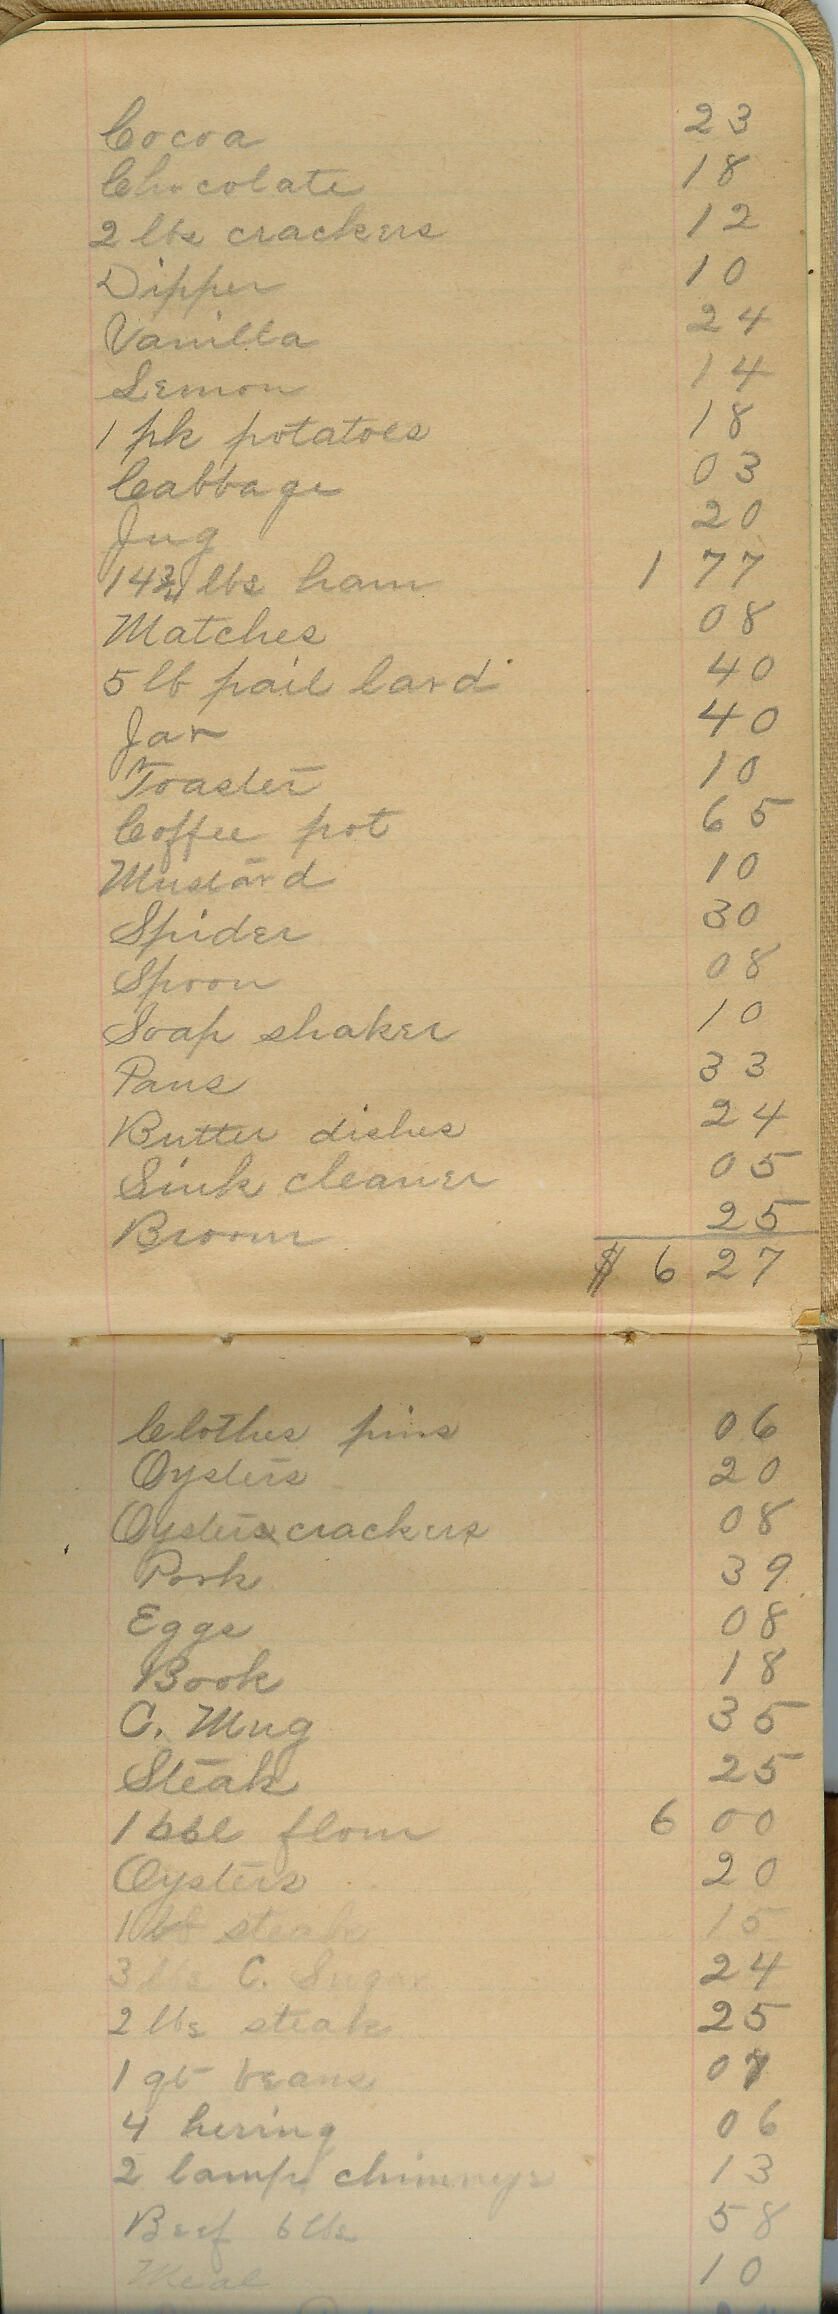 Cocoa 23
Chocolate 18
2 lbs crackers 12
Dipper 10
Vanilla 24
Lemon 14
1 pk potatoes 18
Cabbage 03
Jug 20
14 3/4 lbs ham 1 77
Matches 08
5 lb pail lard 40
Jar 40
Toaster 10
Coffee pot 65
Mustard 10
Spider 30
Spoon 08
Soap shaker 10
Pans 33
Butter dishes 24
Sink cleaner 05
Broom 25
$ 6 27
Clothes pins 06
Oysters 20
Oysters crackers 08
Pork 39
Eggs 08
Book 18
C. Mug 35
Steak 25
1 bbl flour 6 00
Oysters 20
1 lb steak 15
3 lbs C. Sugar 24
2 lbs steak 25
1 qt beans 07
4 hering 06
2 lamp chimneys 13
Beef 6 lbs 58
Meal 10